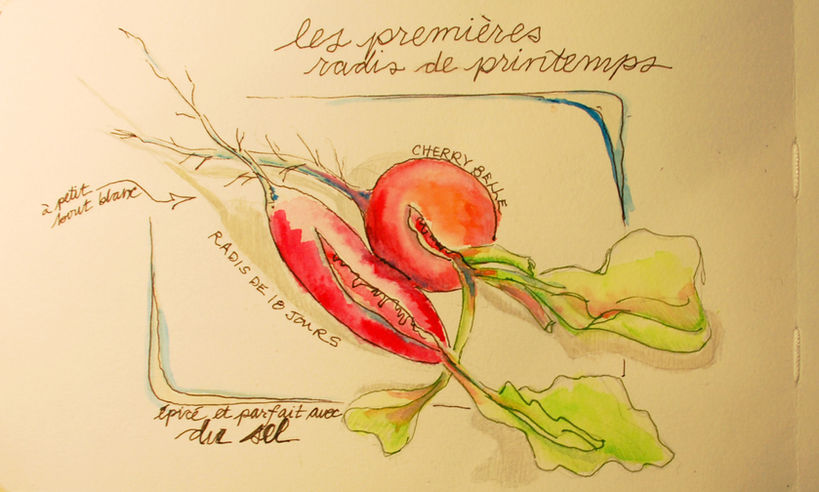 les premières
radis de printemps
CHERRY BELLE
à petit
bout blanc
RADIS DE 18 JOURS
épicé et parfait avec
du sel